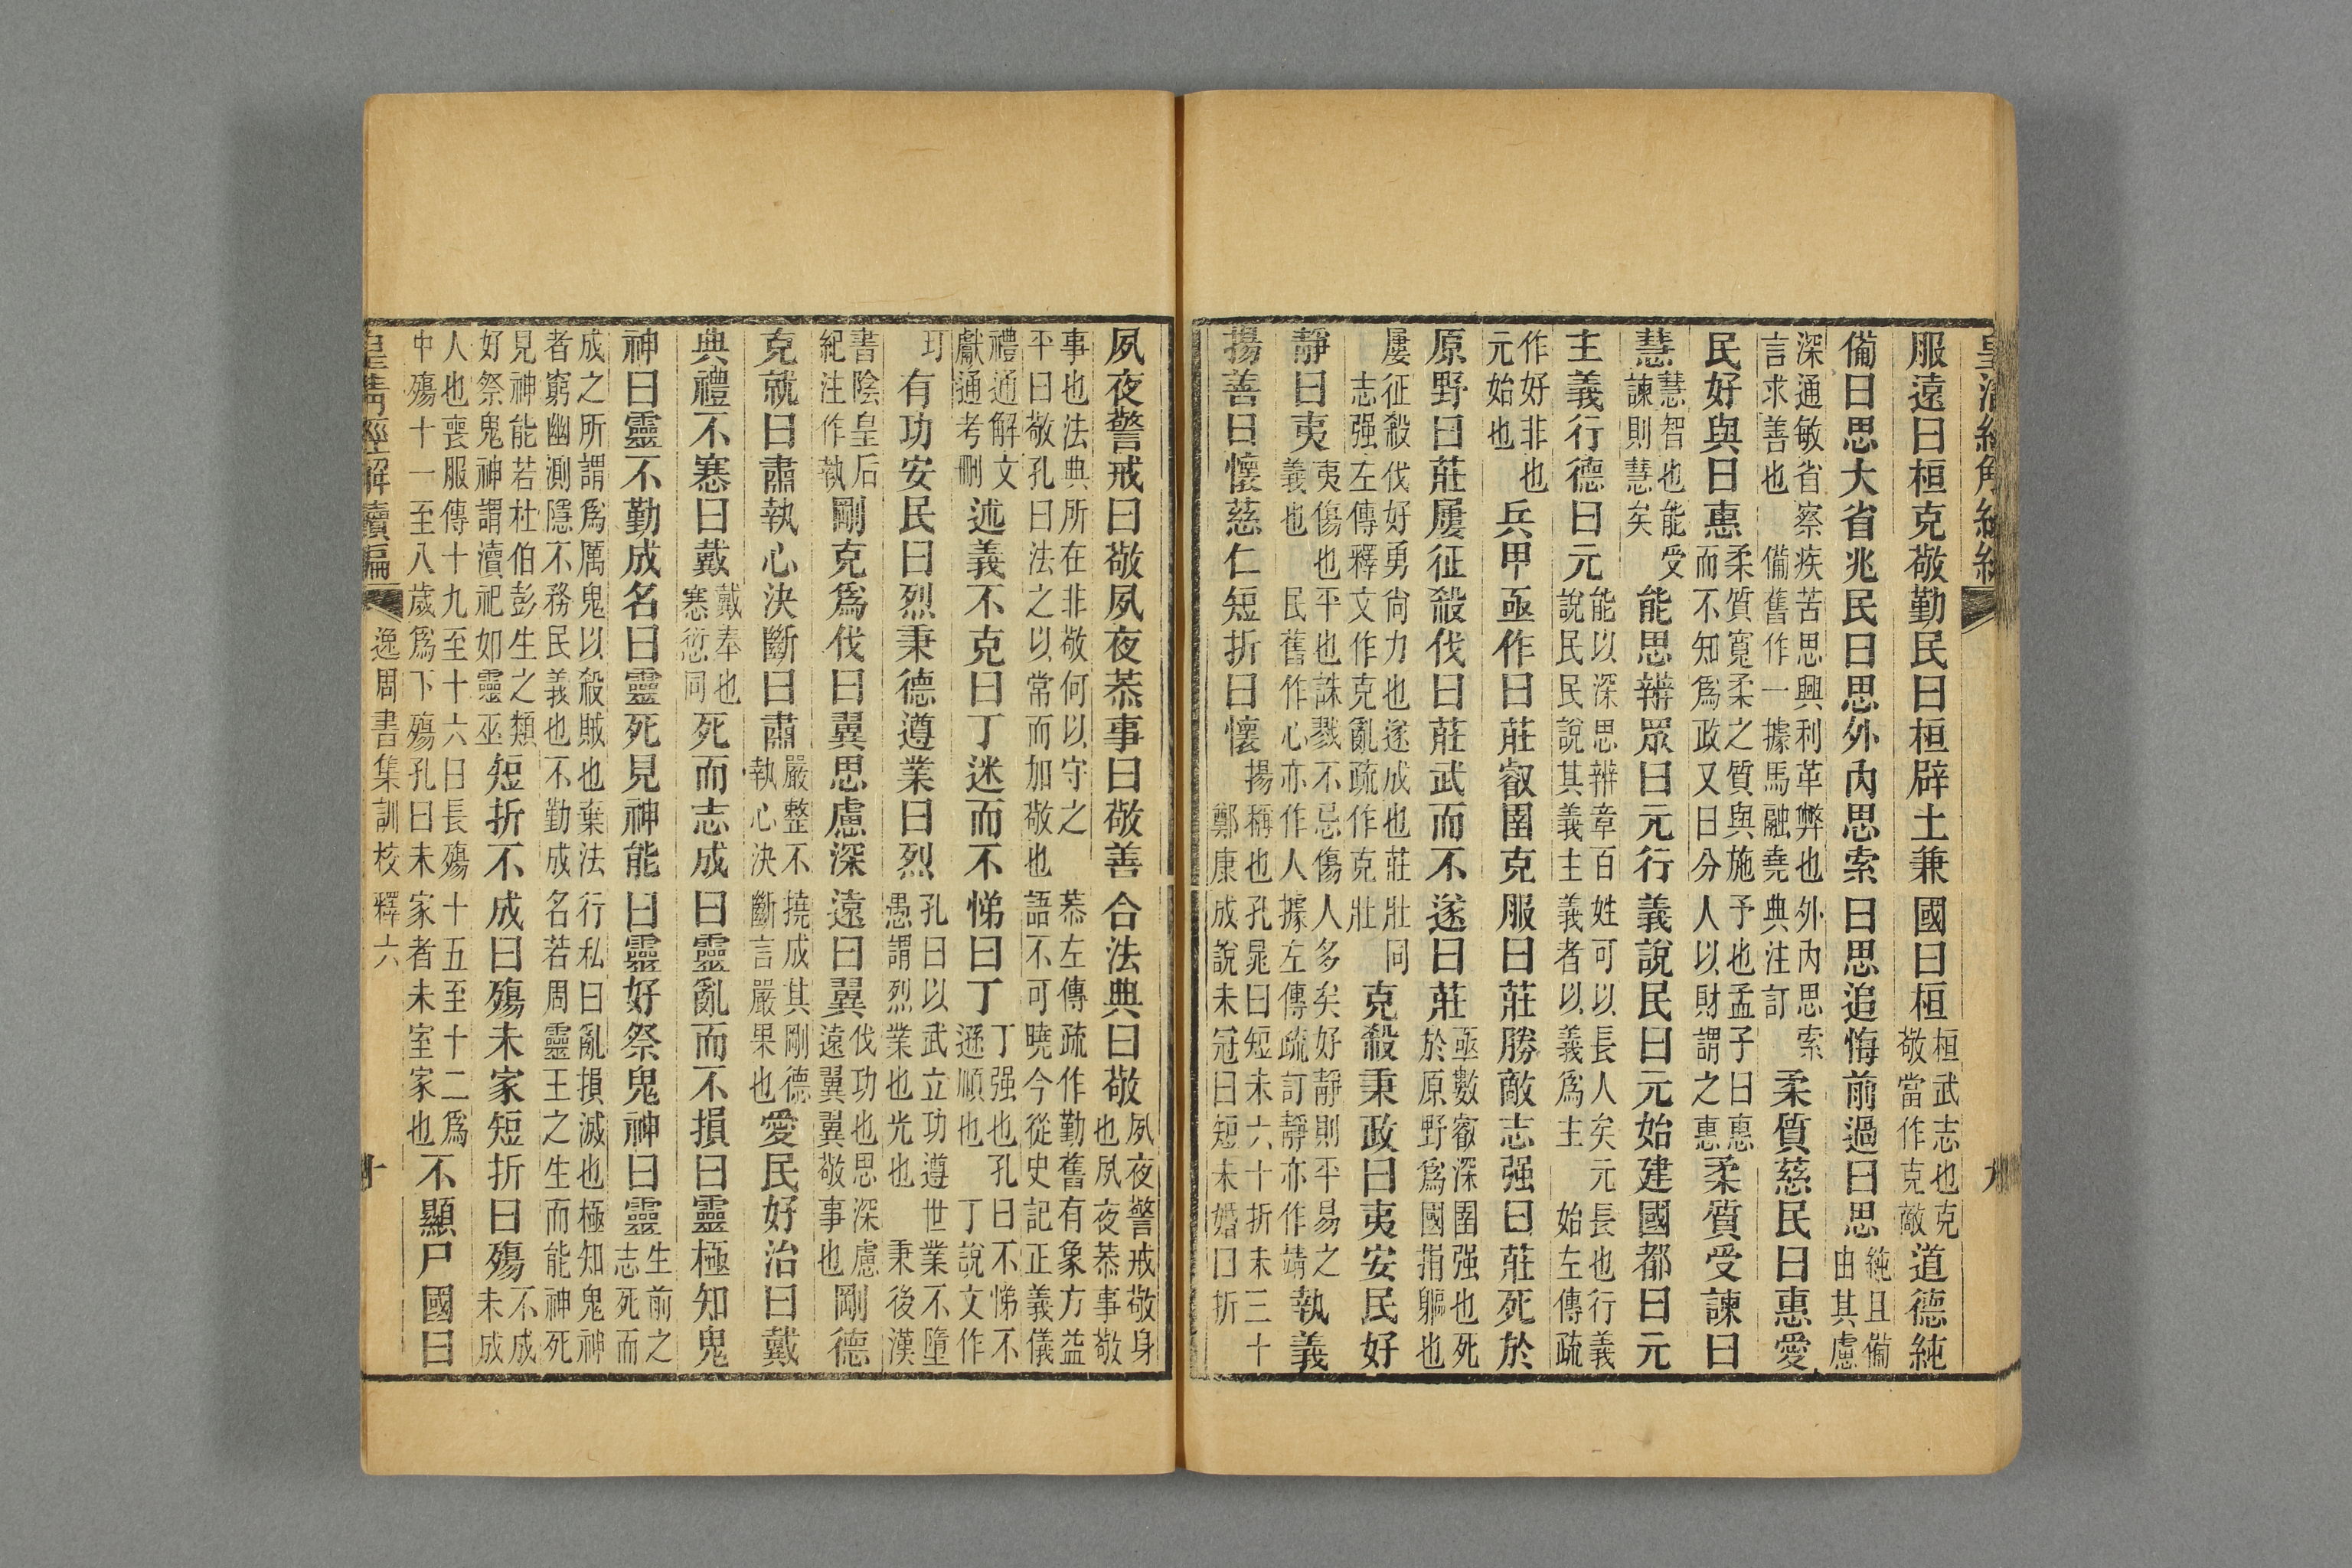 皇清經解續編 九
服遠曰桓克敬勤民曰桓辟土兼國曰桓桓武志也克敬當作克敵道德純
僃曰思大省兆民曰思外內思索曰思追悔前過曰思純且僃由其慮
深通敏省察疾苦思興利革弊也外內思索言求善也 僃舊作一據馬融堯典注訂柔質慈民曰惠愛
民好與曰惠柔質寬柔之質與施予也孟子曰惠而不知爲政又曰分人以財謂之惠柔質受諫曰
慧慧智也能受諫則慧矣能思辨眾曰元行義說民曰元始建國都曰元
主義行德曰元能以深思辨章百姓可以長人矣元長也行義說民民說其義主義者以義爲主 始左傳疏
作好非也元始也兵甲亟作曰莊叡圉克服曰莊勝敵志强曰莊死於
原野曰莊屢征殺伐曰莊武而不遂曰莊亟數叡深圉强也死於原野爲國捐軀也
屢征殺伐好勇尙力也遂成也莊壯同 志强左傳釋文作克亂疏作克壯克殺秉政曰夷安民好
靜曰夷夷傷也平也誅戮不忌傷人多矣好靜則平易之義也 民舊作心亦作人據左傳疏訂靜亦作靖執義
揚善曰懷慈仁短折曰懷揚稱也孔晁曰短未六十折未三十鄭康成說未冠曰短未婚曰折
夙夜警戒曰敬夙夜恭事曰敬善合法典曰敬夙夜警戒敬身也夙夜恭事敬
事也法典所在非敬何以守之平曰敬孔曰法之以常而加敬也 恭左傳疏作勤舊有象方益語不可曉今從史記正義儀
禮通解文獻通考刪述義不克曰丁迷而不悌曰丁丁强也孔曰不悌不遜順也 丁說文作
玎有功安民曰烈秉德遵業曰烈孔曰以武立功遵世業不墮愚謂烈業也光也 秉後漢
書陰皇后紀注作執剛克爲伐曰翼思慮深遠曰翼伐功也思深慮遠翼翼敬事也剛德
克就曰肅執心決斷曰肅嚴整不撓成其剛德執心決斷言嚴果也愛民好治曰戴
典禮不㥶曰戴戴奉也㥶愆同死而志成曰靈亂而不損曰靈極知鬼
神曰靈不勤成名曰靈死見神能曰靈好祭鬼神曰靈生前之志死而
成之所謂爲厲鬼以殺賊也棄法行私曰亂損減也極知鬼神者窮幽測隱不務民義也不勤成名若周靈王之生而能神死
見神能若杜伯彭生之類好祭鬼神謂瀆祀如靈巫短折不成曰殤未家短折曰殤不成未成
人也喪服傳十九至十六曰長殤十五至十二爲中殤十一至八歲爲下殤孔曰未家者未室家也不顯尸國曰
皇清經解續編 逸周書集訓校釋六 十